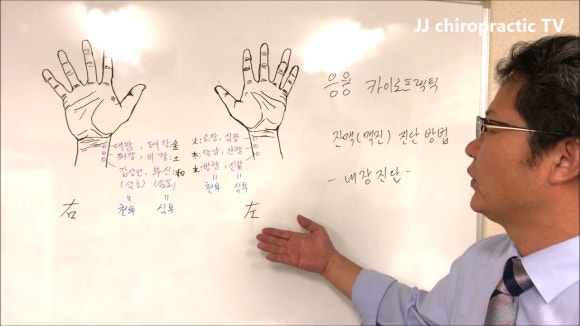 JJ chiropractic TV
응용 카이로프랙틱
진맥(맥진) 진단 방법
- 내장진단 -
대장, 폐장:金
위장, 비장:土
갑상선, 부신:
(삼초) (심포)
천부 심부
右
火:소장, 심장
木:담낭, 간장
水:방광, 신장
천부 심부
左